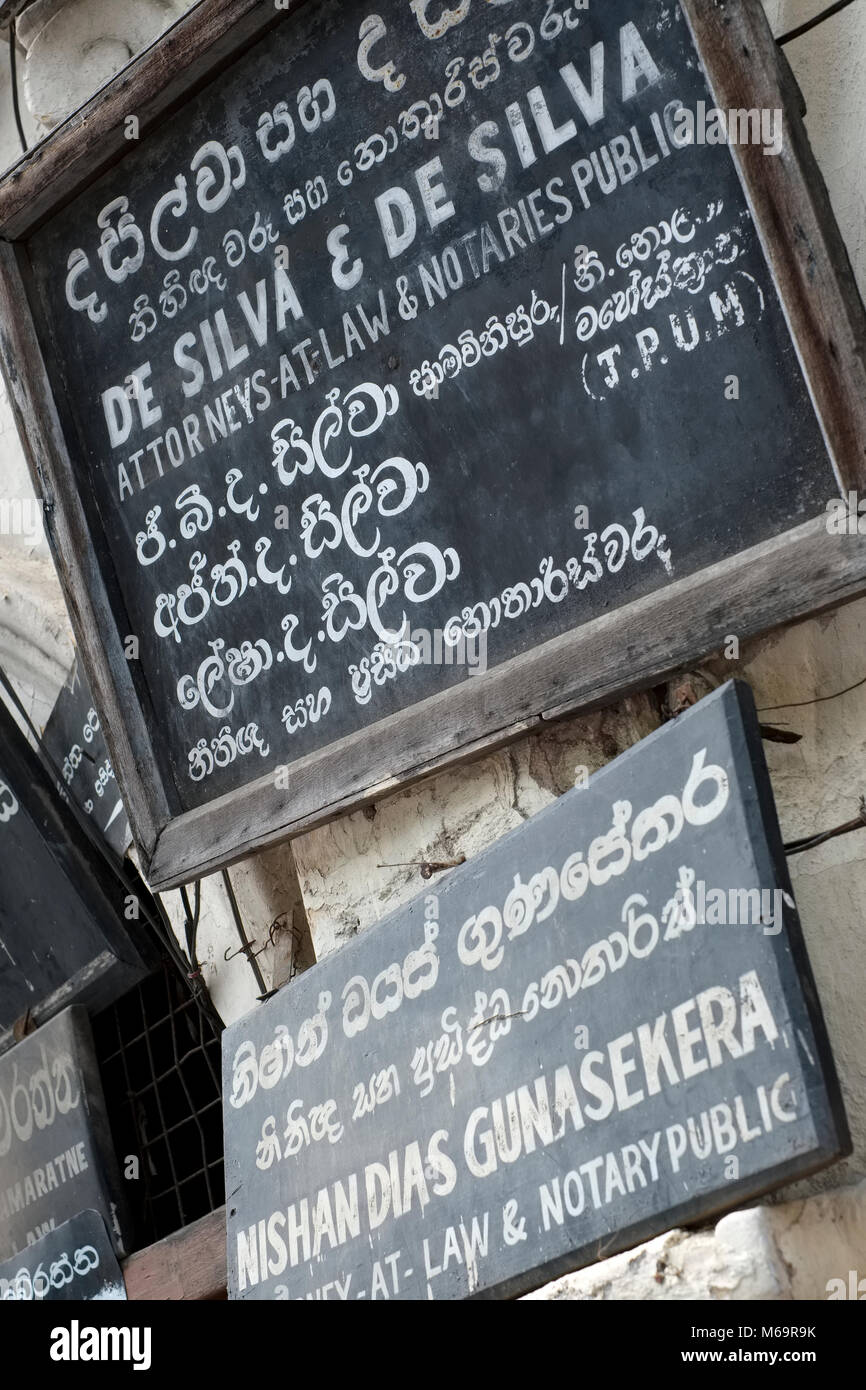 ද සිල්වා සහ ද ස
නීතිඥවරු සහ නොතාරිස්වරු
DE SILVA & DE SILVA
ATTORNEYS-AT-LAW & NOTARIES PUBLIC
ජ්.බී.ද. සිල්වා සාමවිනිසුරු/
(J.P.U.M)
අජිත්.ද.සිල්වා
ලේෂා.ද.සිල්වා
නීතිඥ සහ ප්‍රසිද්ධ නොතාරිස්වරු
නිශාන් ඩයස් ගුණසේකර
නීතිඥ සහ ප්‍රසිද්ධ නොතාරිස්
NISHAN DIAS GUNASEKERA
-AT-LAW & NOTARY PUBLIC
MARATNE
LAW
alamy
M69R9K
www.alamy.com